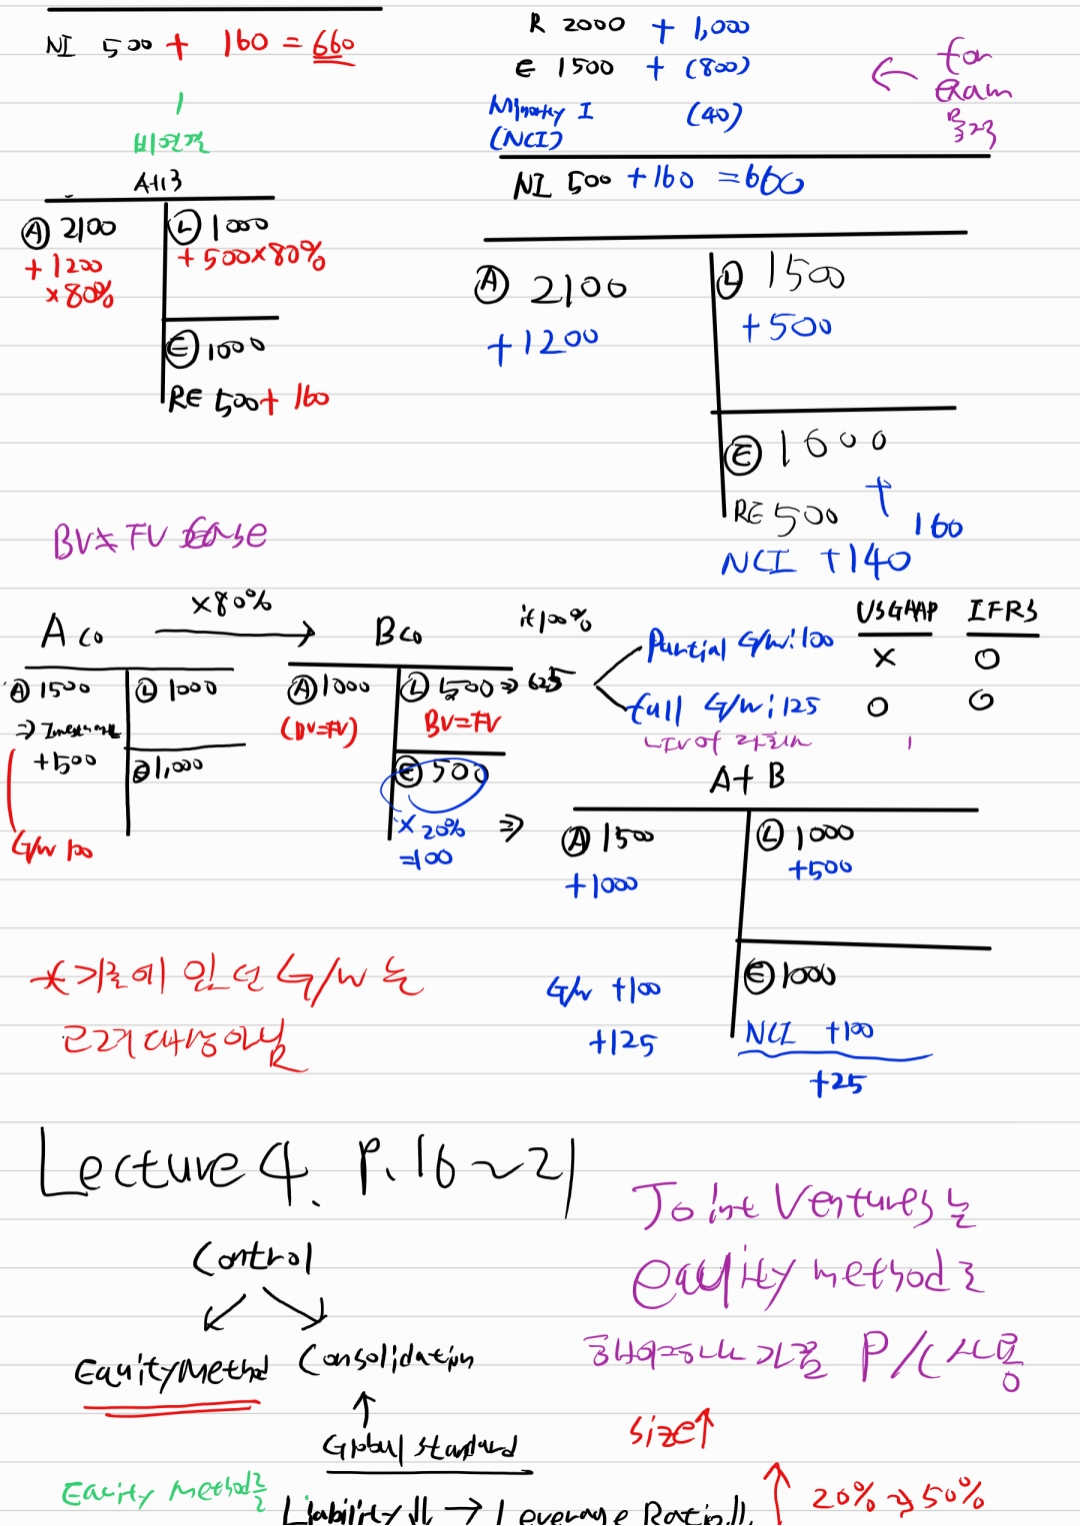 NI 500 + 160 = 660
비연결
A+B
Ⓐ 2100
+ 1200
× 80%
Ⓛ 1000
+ 500×80%
Ⓔ 1000
RE 500 + 160
R 2000 + 1,000
E 1500 + (800)
Minority I (40)
(NCI)
NI 500 +160 = 660
← for
Exam
Ⓐ 2100
+1200
Ⓛ 1500
+500
Ⓔ 1000
RE 500 + 160
NCI +140
BV≠FV case
A co ×80% → B co
Ⓐ 1500
⇒ Investment
+500
G/W 100
Ⓛ 1000
Ⓔ 1,000
Ⓐ 1000
(BV=FV)
Ⓛ 500 ⇒ 625
BV=FV
Ⓔ 500
× 20%
=100
⇒
if 100%
Partial G/W: 100
full G/W: 125
USGAAP IFRS
X O
O O
A+B
Ⓐ 1500
+1000
G/W +100
+125
Ⓛ 1000
+500
Ⓔ 1000
NCI +100
+25
*기존에 있던 G/W는
근거 대상 아님
Lecture 4. P.16~21
Control
Equity Method Consolidation
↑
Global standard
Joint Ventures는
equity method로
가끔 P/C 사용
size↑
Equity Method로
Liability ↓↓ → Leverage Ratio ↓↓
↑ 20% → 50%